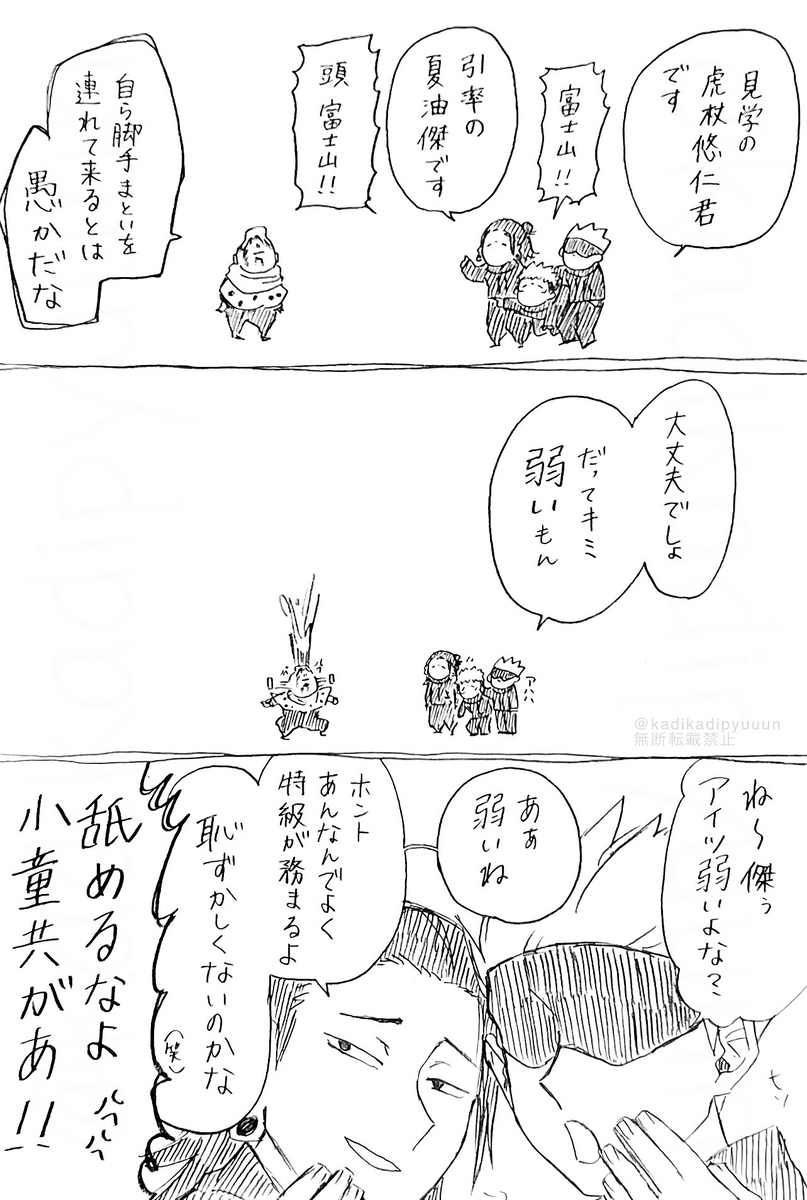 見学の
虎杖悠仁君
です
富士山!!
引率の
夏油傑です
頭富士山!!
自ら脚手まといを
連れて来るとは
愚かだな
大丈夫でしょ
だってキミ
弱いもん
アハハ
@kadikadipyuuun
無断転載禁止
ね〜傑ぅ
アイツ弱いよな?
ああ
弱いね
ホント
あんなんでよく
特級が務まるよ
恥ずかしくないのかな
(笑)
舐めるなよ
小童共があ!!